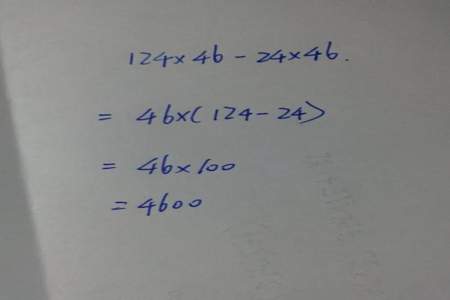 124×46-24×46.
= 46×(124-24)
= 46×100
= 4600